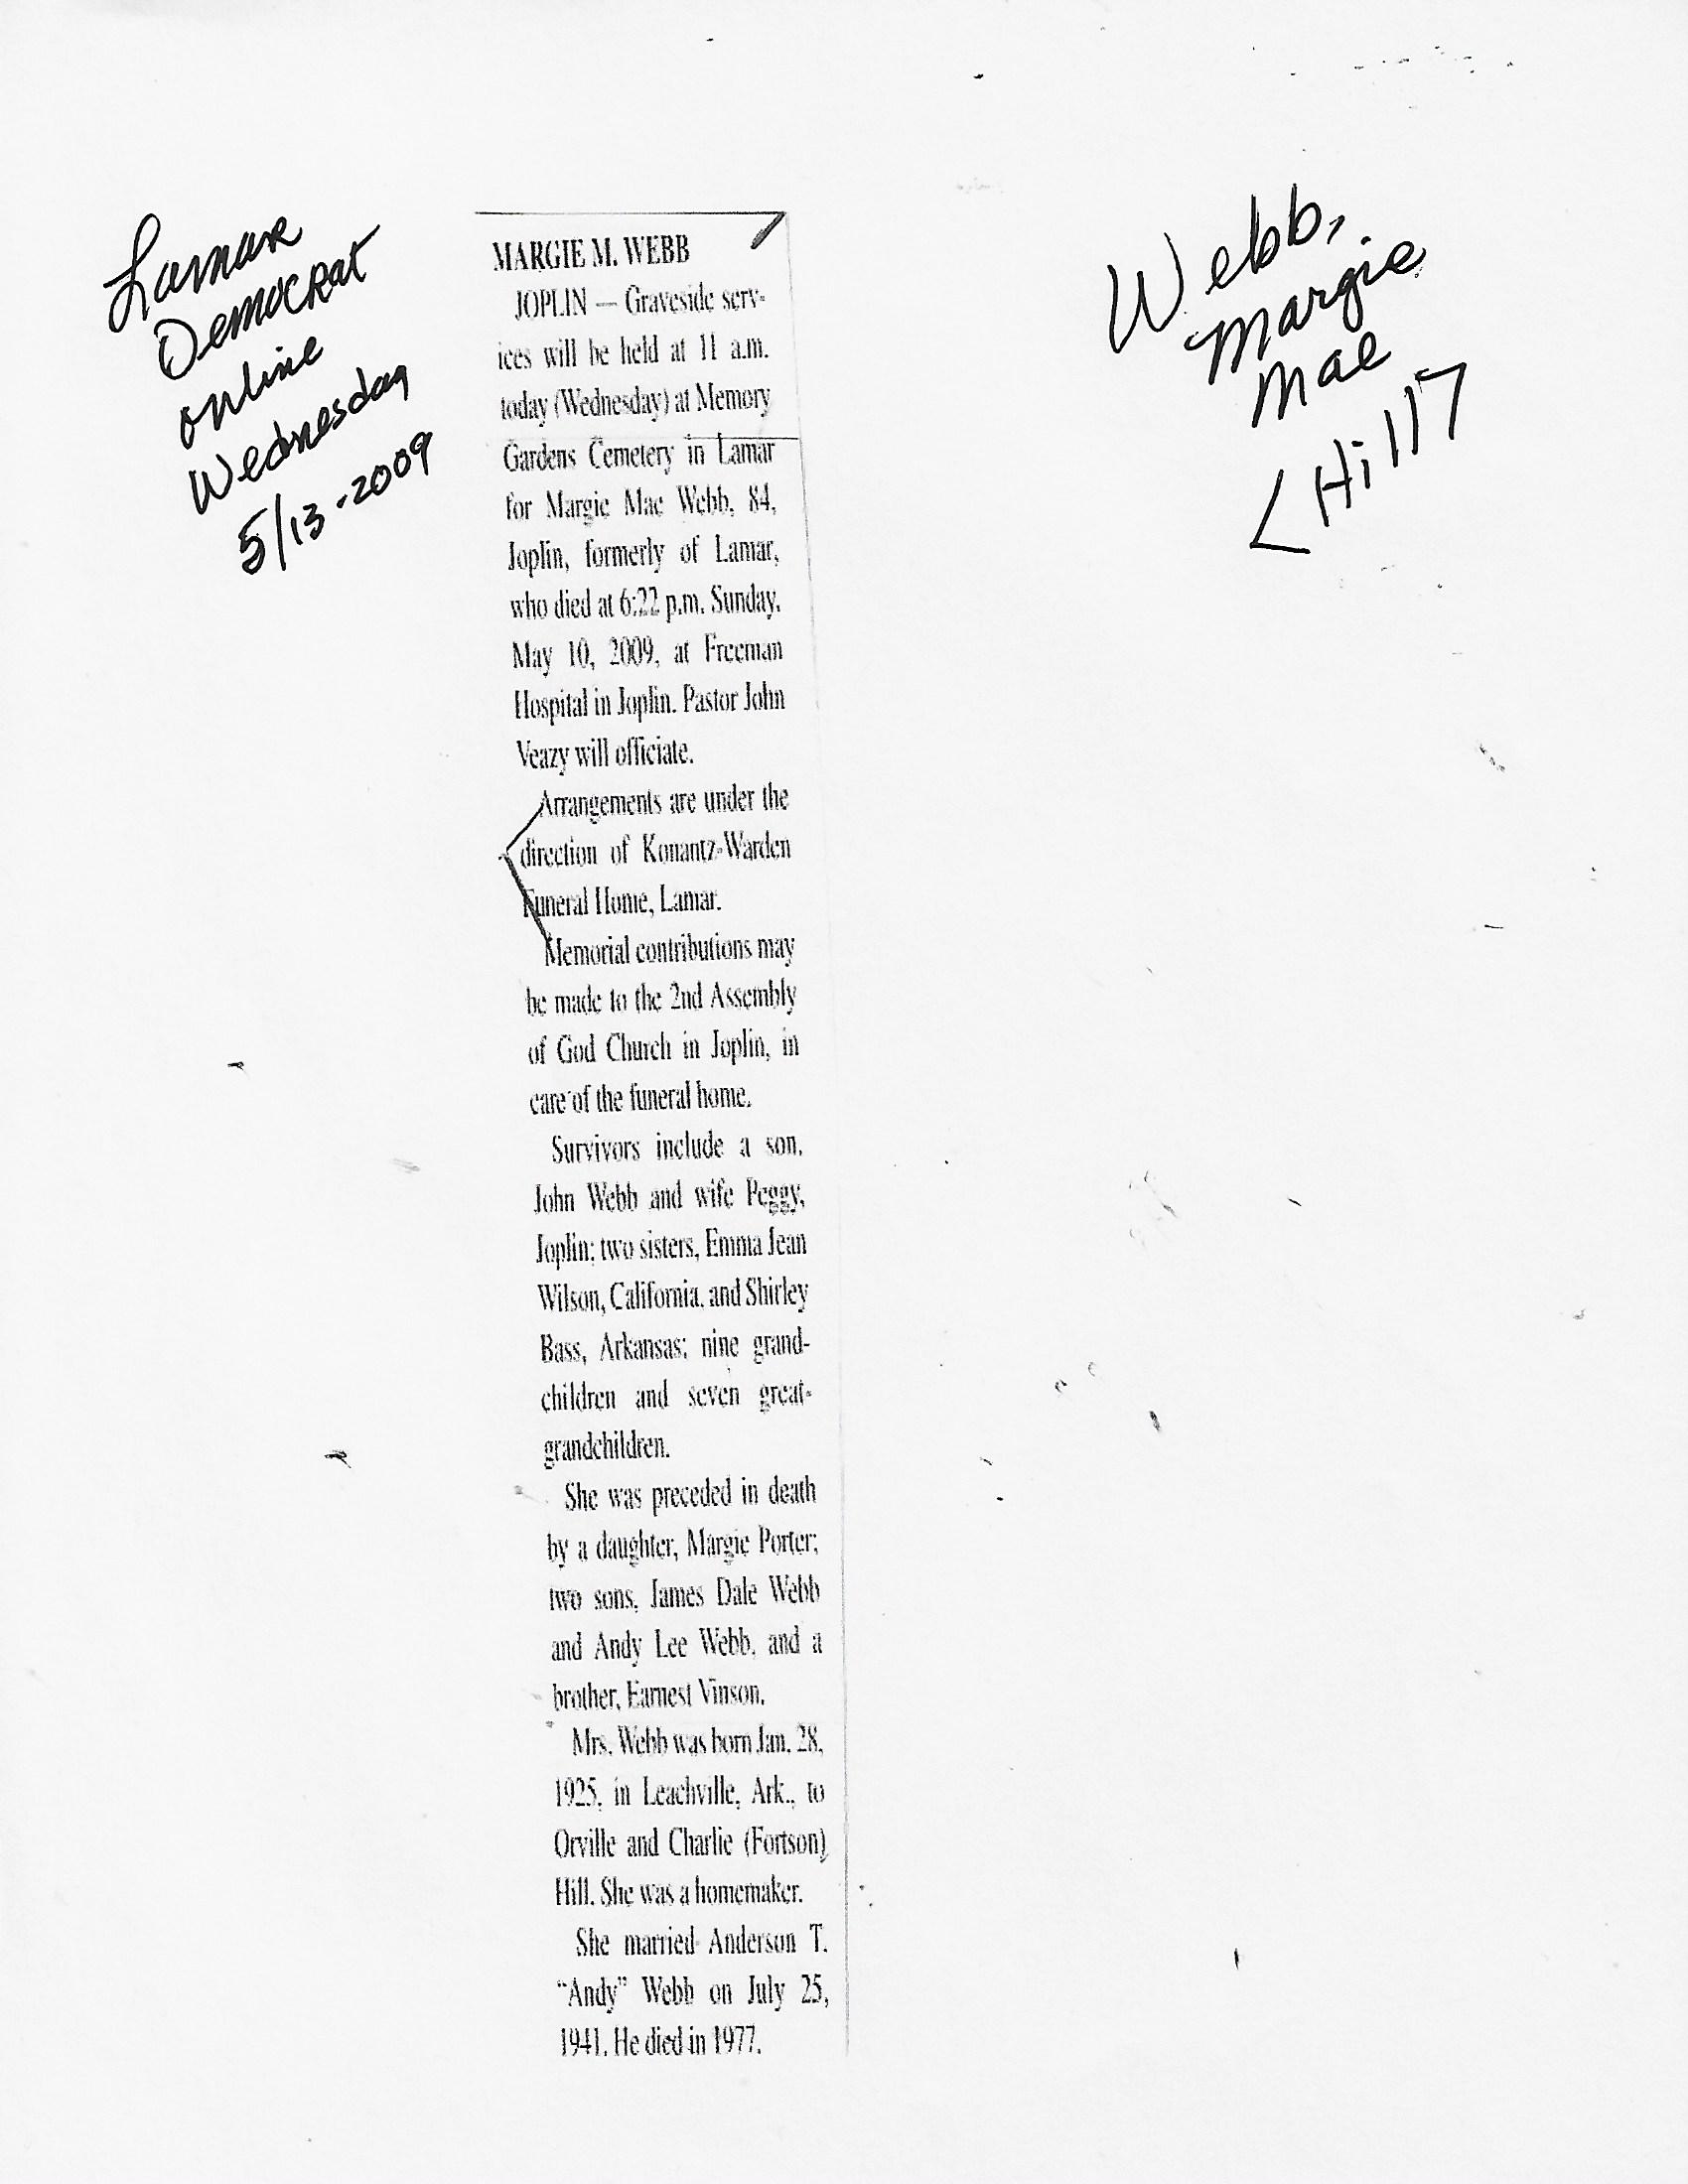 Lamar
Democrat
online
Wednesday
5/13-2009
Webb,
Margie
Mae
<Hill>
MARGIE M. WEBB
JOPLIN — Graveside serv-
ices will be held at 11 a.m.
today (Wednesday) at Memory
Gardens Cemetery in Lamar
for Margie Mae Webb, 84,
Joplin, formerly of Lamar,
who died at 6:22 p.m. Sunday,
May 10, 2009, at Freeman
Hospital in Joplin. Pastor John
Veazy will officiate.
Arrangements are under the
direction of Konantz-Warden
Funeral Home, Lamar.
Memorial contributions may
be made to the 2nd Assembly
of God Church in Joplin, in
care of the funeral home.
Survivors include a son,
John Webb and wife Peggy,
Joplin; two sisters, Emma Jean
Wilson, California, and Shirley
Bass, Arkansas; nine grand-
children and seven great-
grandchildren.
She was preceded in death
by a daughter, Margie Porter;
two sons, James Dale Webb
and Andy Lee Webb, and a
brother, Earnest Vinson.
Mrs. Webb was born Jan. 28,
1925, in Leachville, Ark., to
Orville and Charlie (Fortson)
Hill. She was a homemaker.
She married Anderson T.
"Andy" Webb on July 25,
1941. He died in 1977.